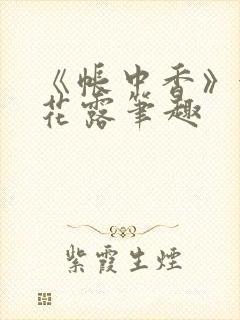 《帐中香》
花露笔趣
紫霞生煙